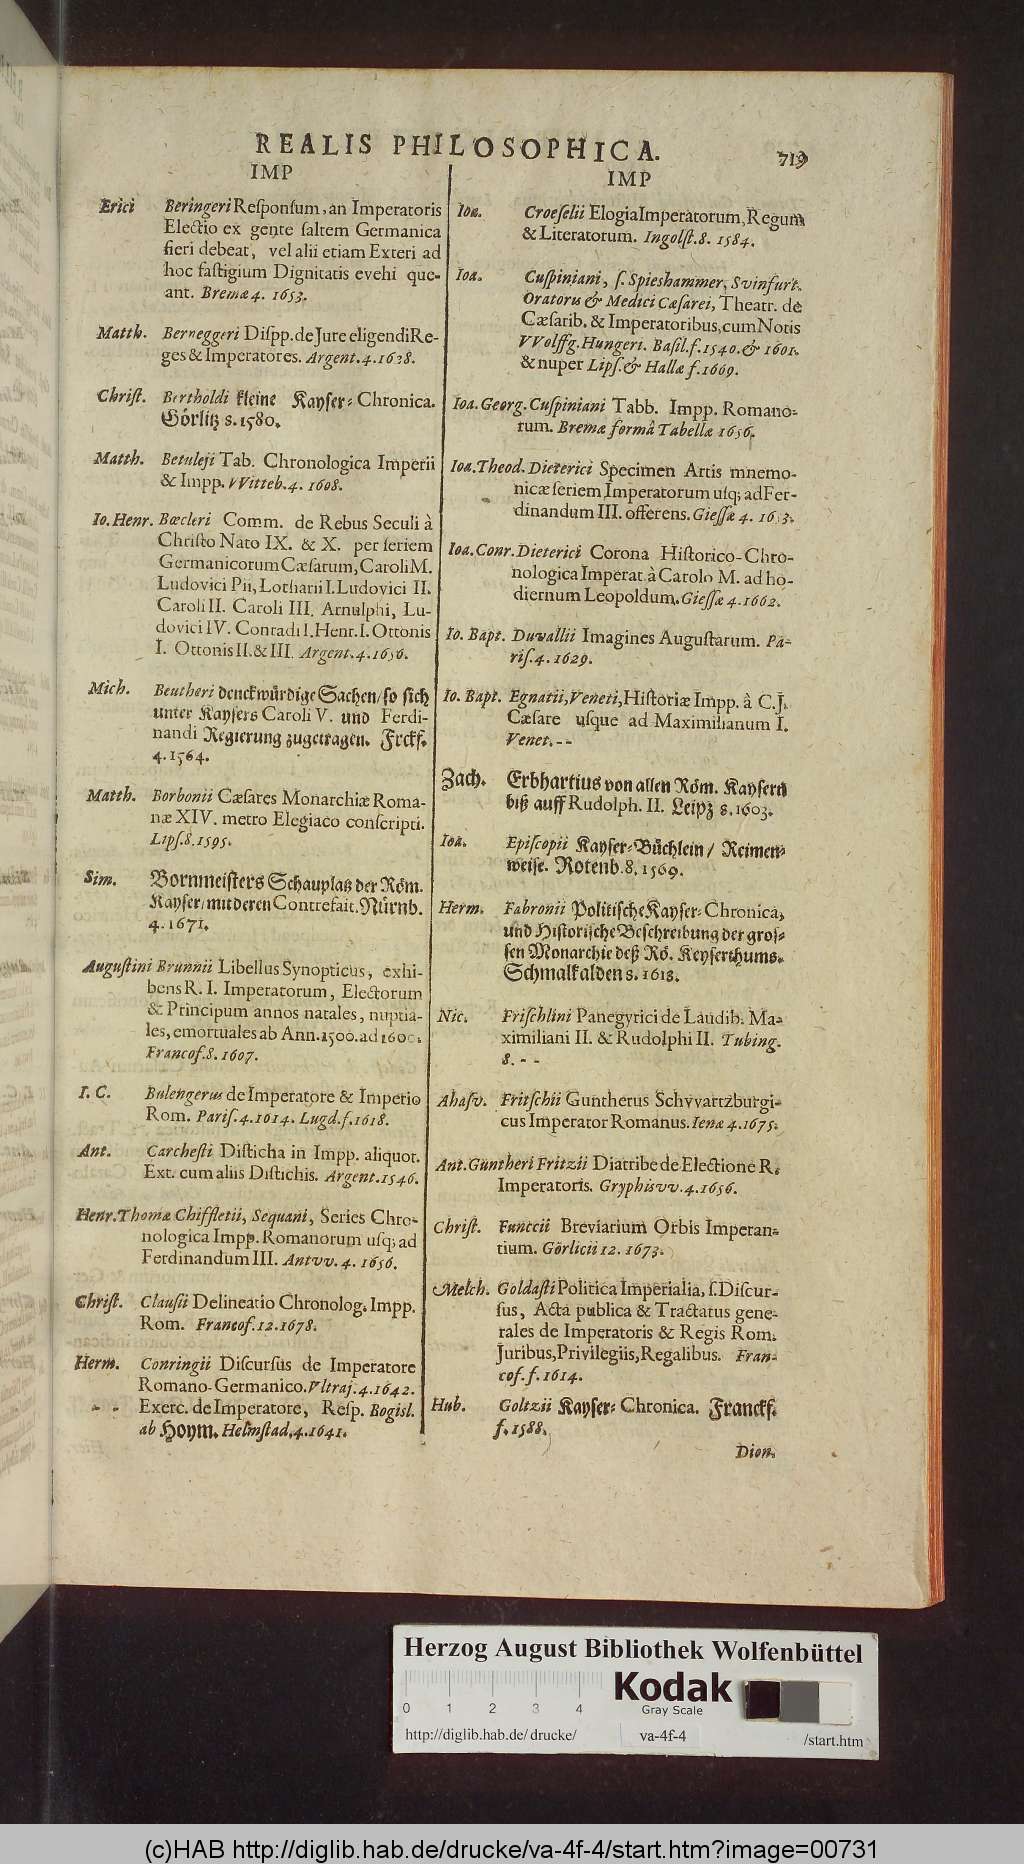 REALIS PHILOSOPHICA.
719
IMP
Erici Beringeri Reſponſum, an Imperatoris
Electio ex gente ſaltem Germanica
fieri debeat, vel alii etiam Exteri ad
hoc faſtigium Dignitatis evehi que-
ant. Bremæ 4. 1653.
Matth. Berneggeri Diſpp. de Jure eligendi Re-
ges & Imperatores. Argent. 4. 1628.
Chriſt. Bertholdi kleine Kayſer- Chronica.
Görlitz 8. 1580.
Matth. Betuleji Tab. Chronologica Imperii
& Impp. VVitteb. 4. 1608.
Io. Henr. Bœcleri Comm. de Rebus Seculi à
Chriſto Nato IX. & X. per ſeriem
Germanicorum Cæſarum, Caroli M.
Ludovici Pii, Lotharii I. Ludovici II.
Caroli II. Caroli III. Arnulphi, Lu-
dovici IV. Conradi I. Henr. I. Ottonis
I. Ottonis II. & III. Argent. 4. 1656.
Mich. Beutheri denckwürdige Sachen / ſo ſich
unter Kayſers Caroli V. und Ferdi-
nandi Regierung zugetragen. Frckf.
4. 1564.
Matth. Borbonii Cæſares Monarchiæ Roma-
næ XIV. metro Elegiaco conſcripti.
Lipſ. 8. 1595.
Sim. Bornmeiſters Schauplatz der Röm.
Kayſer / mit deren Contrefait. Nürnb.
4. 1671.
Auguſtini Brunnii Libellus Synopticus, exhi-
bens R. I. Imperatorum, Electorum
& Principum annos natales, nuptia-
les, emortuales ab Ann. 1500. ad 1600.
Francof. 8. 1607.
I. C. Bulengerus de Imperatore & Imperio
Rom. Pariſ. 4. 1614. Lugd. f. 1618.
Ant. Carcheſti Diſticha in Impp. aliquot.
Ext. cum aliis Diſtichis. Argent. 1546.
Henr. Thomæ Chiffletii, Sequani, Series Chro-
nologica Impp. Romanorum uſq; ad
Ferdinandum III. Antvv. 4. 1656.
Chriſt. Clauſii Delineatio Chronolog. Impp.
Rom. Francof. 12. 1678.
Herm. Conringii Diſcurſus de Imperatore
Romano-Germanico. Vltraj. 4. 1642.
- - Exerc. de Imperatore, Reſp. Bogisl.
ab Hoym. Helmſtad. 4. 1641.
IMP
Ioa. Croeſelii Elogia Imperatorum, Regum
& Literatorum. Ingolſt. 8. 1584.
Ioa. Cuſpiniani, ſ. Spieshammer, Svinfurt.
Oratoris & Medici Cæſarei, Theatr. de
Cæſarib. & Imperatoribus, cum Notis
VVolffg. Hungeri. Baſil. f. 1540. & 1601.
& nuper Lipſ. & Hallæ f. 1669.
Ioa. Georg. Cuſpiniani Tabb. Impp. Romano-
rum. Bremæ formâ Tabellæ 1656.
Ioa. Theod. Dieterici Specimen Artis mnemo-
nicæ ſeriem Imperatorum uſq; ad Fer-
dinandum III. offerens. Gieſſæ 4.
Ioa. Conr. Dieterici Corona Hiſtorico-Chro-
nologica Imperat. à Carolo M. ad ho-
diernum Leopoldum. Gieſſæ 4. 1662.
Io. Bapt. Duvallii Imagines Auguſtarum. Pa-
riſ. 4. 1629.
Io. Bapt. Egnatii, Veneti, Hiſtoriæ Impp. â C. J.
Cæſare uſque ad Maximilianum I.
Venet. - -
Zach. Erbhartius von allen Röm. Kayſern
biß auff Rudolph. II. Leipz 8. 1603.
Ioa. Epiſcopii Kayſer-Büchlein / Reimen-
weiſe. Rotenb. 8. 1569.
Herm. Fabronii Politiſche Kayſer- Chronica,
und Hiſtoriſche Beſchreibung der groſ-
ſen Monarchie deß Rö. Keyſerthums.
Schmalkalden 8. 1618.
Nic. Friſchlini Panegyrici de Laudib. Ma-
ximiliani II. & Rudolphi II. Tubing.
8. - -
Ahaſv. Fritſchii Guntherus Schvvartzburgi-
cus Imperator Romanus. Ienæ 4. 1675.
Ant. Guntheri Fritzii Diatribe de Electione R.
Imperatoris. Gryphisvv. 4. 1656.
Chriſt. Funccii Breviarium Orbis Imperan-
tium. Görlicii 12. 1673.
Melch. Goldaſti Politica Imperialia, ſ. Diſcur-
ſus, Acta publica & Tractatus gene-
rales de Imperatoris & Regis Rom.
Juribus, Privilegiis, Regalibus. Fran-
cof. f. 1614.
Hub. Goltzii Kayſer- Chronica. Franckf.
f. 1588.
Dion.
Herzog August Bibliothek Wolfenbüttel
0 1 2 3 4
Kodak
Gray Scale
http://diglib.hab.de/drucke/ va-4f-4 /start.htm
(c)HAB http://diglib.hab.de/drucke/va-4f-4/start.htm?image=00731